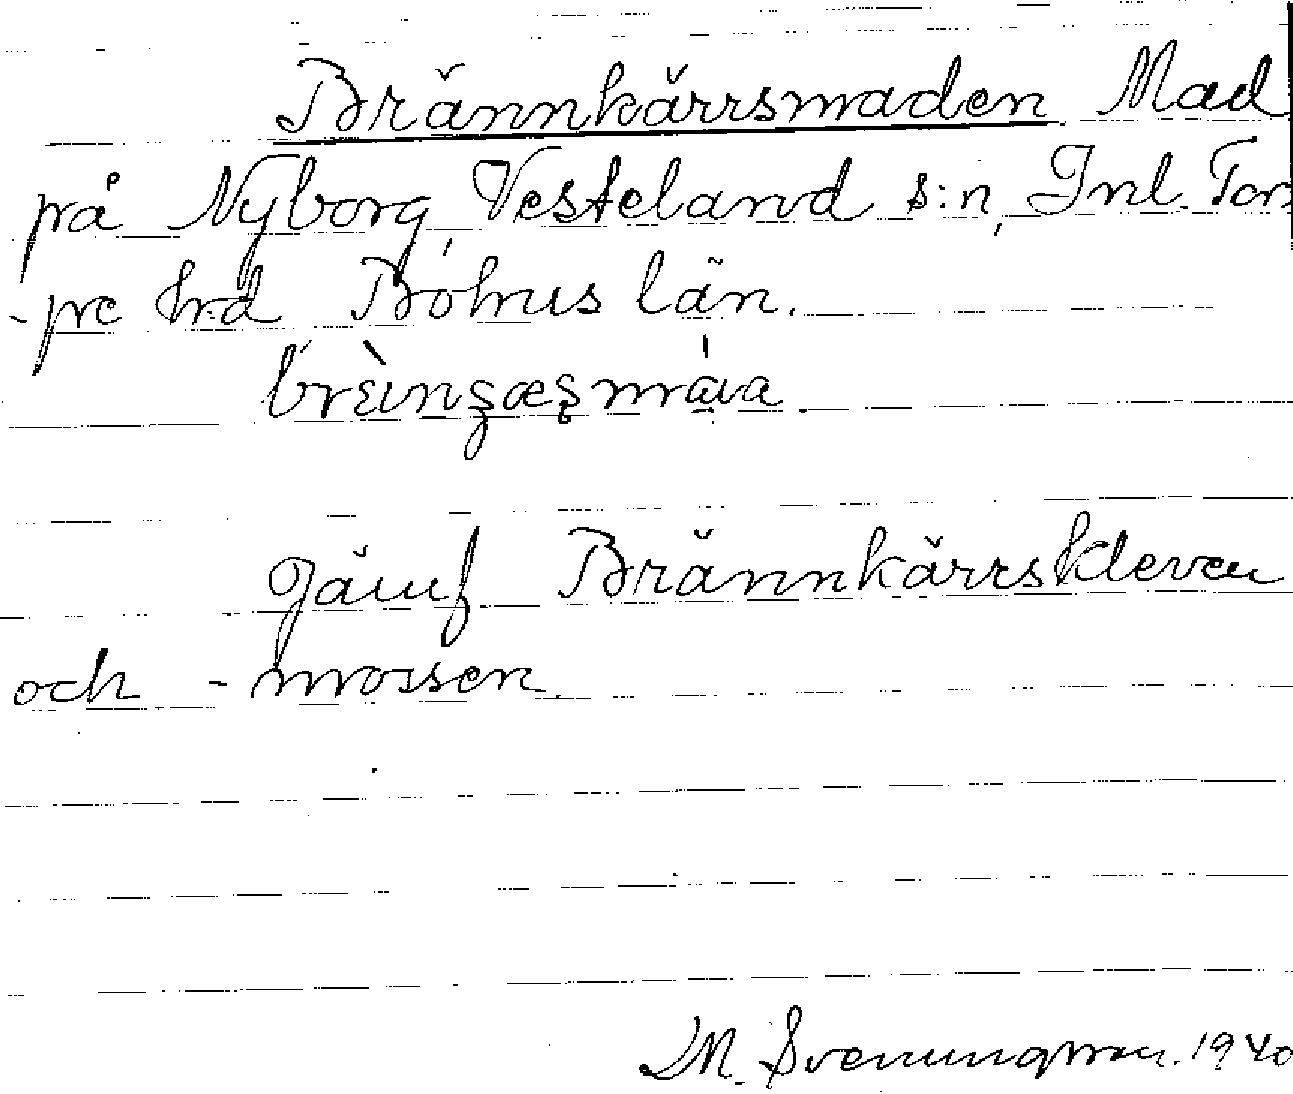 Brännkärrsmaden Mad
på Nyborg, Vesteland s:n, Inl. Tor
-pe hrd Bohus län.
Jämf Brännkärrskleven
och -mossen
M. Svenungsson. 1940